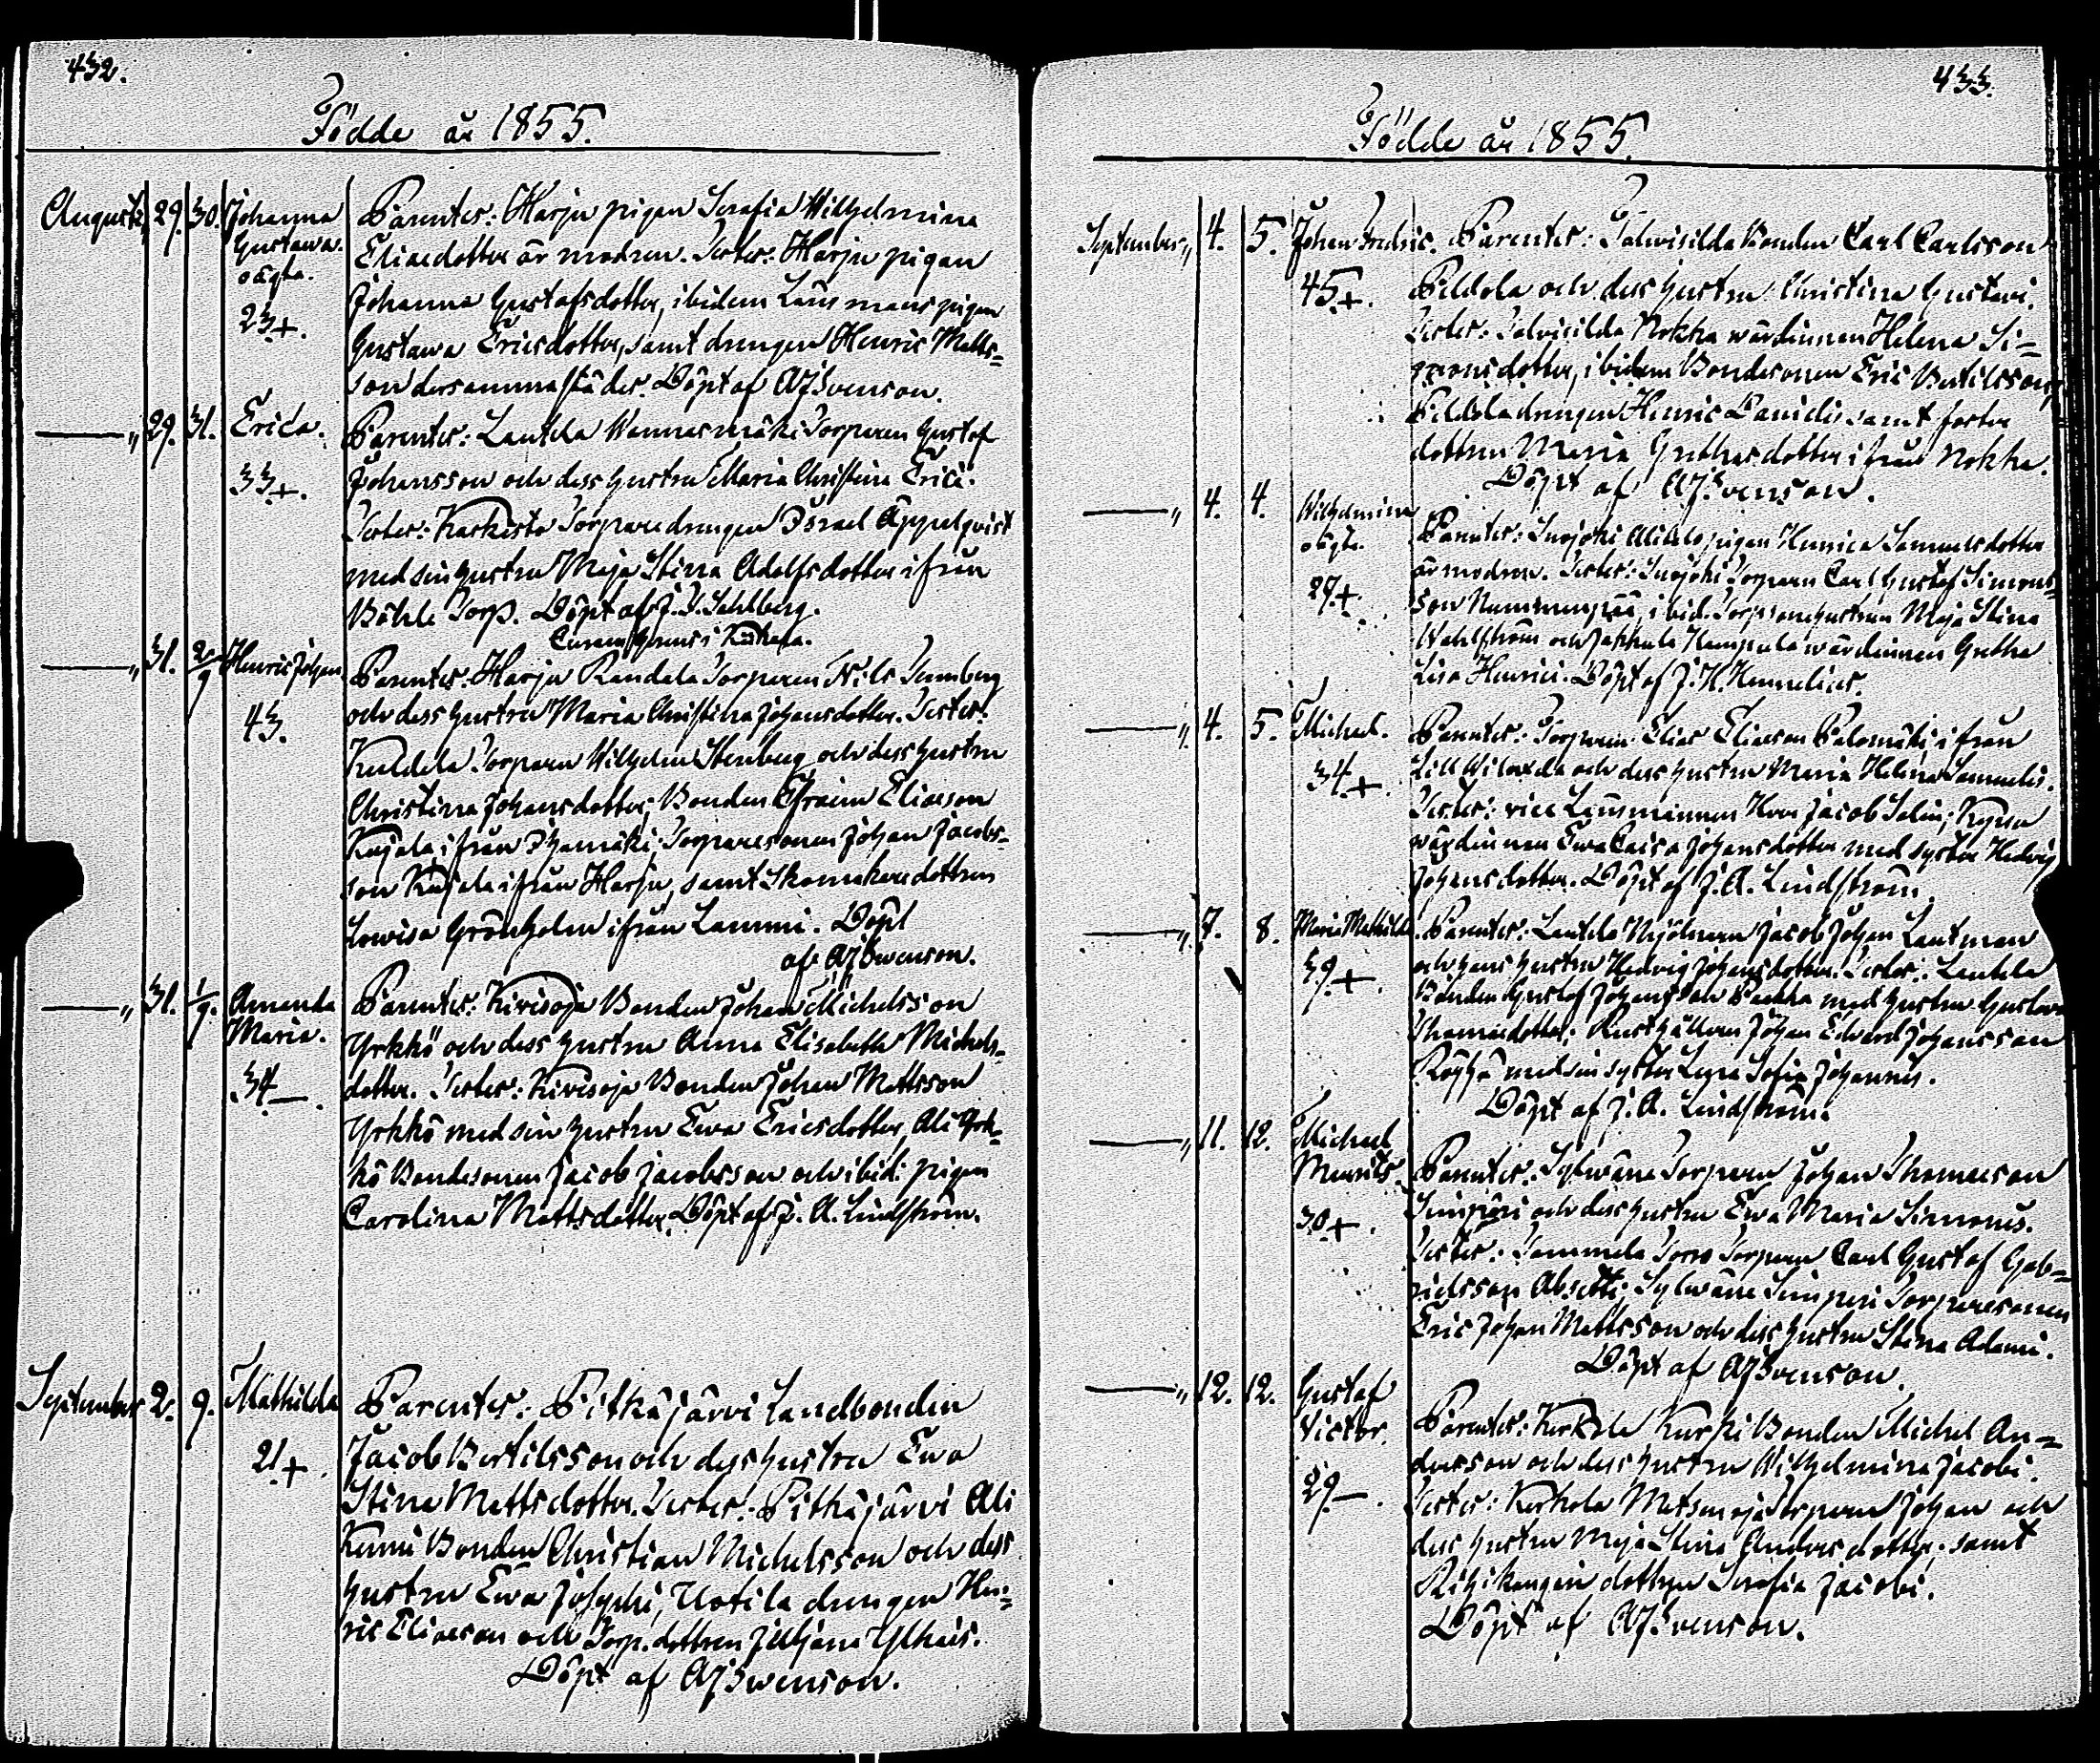 432.
Födde år 1855.
Augusti „ 29. 30. Johanna Gustava. oägta. 23+.
Parenter: Harju pigan Serafia Wilhelmina
Eliaedotter är modren. Tester: Harju pigan
Johanna Gustafsdotter, ibidem Länsmans pigan
Gustava Ericsdotter, samt drengen Henric Matts=
son dersammastädes. Döpt af AJSvenson.
— „ 29. 31. Erica. 33+.
Parenter: Lautela Wannasmäki Torparen Gustaf
Johansson och dess hustru Maria Christina Erici.
Tester: Karkisto Torparedrengen Israel Äppelqvist
med sin hustru Maja Stina Adolfsdotter ifrån
Böhle Torp. Döpt af J. J. Sahlberg.
— „ 31. 2/9 Henric Johan 43.
Parenter: Harju Randala Torparen Nils Tennberg
och dess hustru Maria Christina Johansdotter. Tester:
Torparen Wilhelm Stenberg och dess hustru
Christina Johansdotter; Bonden Efraim Eliaeson
Kujala ifrån Torparesonen Johan Jacobs=
son Kujala ifrån Harju, samt Skomakaredottren
Lovisa Grönholm ifrån Lammi. Döpt
af AJSwenson.
— „ 31. 1/9. Amanda Maria. 34—.
Parenter: Kirvisoja Bonden Johan Michelsson
Yrkkö och dess hustru Anna Elisabeth Michels=
dotter. Tester: Kirvisoja Bonden Johan Mattsson
Yrkkö med sin hustru Ewa Ericsdotter, Ali Yrk=
kö Bondesonen Jacob Jacobsson och ibid: pigan
Carolina Mattsdotter. Döpt af J. A. Lindström.
September 2. 9. Mathilda 21+.
Parenter: Pitkäjärvi Landbonden
Jacob Bertilsson och dess hustru Ewa
Stina Mattsdotter. Tester: Pitkäjärvi Ali
Kenni Bonden Christian Michelsson och dess
hustru Ewa Josephi, Uotila drengen Hen=
ric Eliaeson och Torp.dottren Juljana
Döpt af AJSwenson.
433.
Födde år 1855.
September „ 4. 5. Johan Fredric. 45+.
Parenter: Talvisilda Bonden Carl Carlsson
Pildola och dess hustru Christina Gustavi.
Tester: Talvisilda Nokka wärdinnan Helena Si=
monsdotter, ibidem Bondesonen Eric Bertilsson,
Pildola drengen Henric Danieli samt foster
dottren Maria Grethasdotter ifrån Nokka.
Döpt af AJSvenson.
— „ 4. 4. Wilhelmina oägta. 27+.
Parenter: Suojoki Alikilo pigan Henrica Samuelsdotter
är modren. Tester: Suojoki Torparen Carl Gustaf Simons=
son Nummenpää, ibid. Torparehustrun Maja Stina
Wahlström och Jakkula wärdinnan Gretha
Lisa Henrici. Döpt af J. H. Hemelius.
— „ 4. 5. Michael. 34+.
Parenter: Torparen Elias Eliaeson Palomäki ifrån
Lill och dess hustru Maria Helena Samuelis.
Tester: vice Länsmannen Herr Jacob Salin;
wärdinnan Ewa Caisa Johansdotter med syster Hedvig
Johansdotter. Döpt af J. A. Lindström.
— „ 7. 8. Maria Mathilda. 39+.
Parenter: Lautela Mjölnaren Jacob Johan Lautman
och hans hustru Hedvig Johansdotter. Tester: Lautela
Bonden Gustaf Johansson med hustru Gustava
Thomasdotter; Rusthållaren Johan Edvard Johansson
med sin syster Lena Sofia Johannis.
Döpt af J. A. Lindström.
— „ 11. 12. Michael Maurits. 30+.
Parenter: Sylwäne Torparen Johan Thomaeson
Simperi och dess hustru Ewa Maria Simonis.
Tester: Tammela Torro Torparen Carl Gustaf Gab=
rielsson Absetti; Sylwäne Simperi Torparesonen
Eric Johan Mattsson och dess hustru Stina Adami.
Döpt af AJSvenson.
— „ 12. 12. Gustaf Victor. 29—.
Parenter: Kerkola Kurki Bonden Michel An=
dersson och dess hustru Wilhelmina Jacobi.
Tester: Kerkola Metsenoja Torparen Johan och
dess hustru Maja Stina Andersdotter, samt
dottren Serafia Jacobi.
Döpt af AJSvenson.